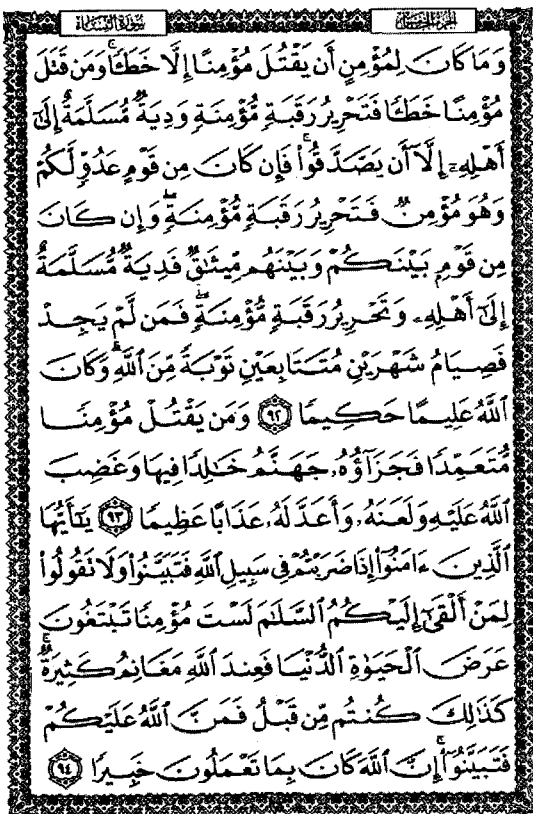 سورة النساء الجزء الخامس
وَمَا كَانَ لِمُؤْمِنٍ أَن يَقْتُلَ مُؤْمِنًا إِلَّا خَطَـًٔا ۚ وَمَن قَتَلَ
مُؤْمِنًا خَطَـًٔا فَتَحْرِيرُ رَقَبَةٍ مُّؤْمِنَةٍ وَدِيَةٌ مُّسَلَّمَةٌ إِلَىٰٓ
أَهْلِهِۦٓ إِلَّآ أَن يَصَّدَّقُوا۟ ۚ فَإِن كَانَ مِن قَوْمٍ عَدُوٍّ لَّكُمْ
وَهُوَ مُؤْمِنٌ فَتَحْرِيرُ رَقَبَةٍ مُّؤْمِنَةٍ ۖ وَإِن كَانَ
مِن قَوْمٍۭ بَيْنَكُمْ وَبَيْنَهُم مِّيثَٰقٌ فَدِيَةٌ مُّسَلَّمَةٌ
إِلَىٰٓ أَهْلِهِۦ وَتَحْرِيرُ رَقَبَةٍ مُّؤْمِنَةٍ ۖ فَمَن لَّمْ يَجِدْ
فَصِيَامُ شَهْرَيْنِ مُتَتَابِعَيْنِ تَوْبَةً مِّنَ ٱللَّهِ ۗ وَكَانَ
ٱللَّهُ عَلِيمًا حَكِيمًا ٩٢ وَمَن يَقْتُلْ مُؤْمِنًا
مُّتَعَمِّدًا فَجَزَآؤُهُۥ جَهَنَّمُ خَٰلِدًا فِيهَا وَغَضِبَ
ٱللَّهُ عَلَيْهِ وَلَعَنَهُۥ وَأَعَدَّ لَهُۥ عَذَابًا عَظِيمًا ٩٣ يَٰٓأَيُّهَا
ٱلَّذِينَ ءَامَنُوٓا۟ إِذَا ضَرَبْتُمْ فِى سَبِيلِ ٱللَّهِ فَتَبَيَّنُوا۟ وَلَا تَقُولُوا۟
لِمَنْ أَلْقَىٰٓ إِلَيْكُمُ ٱلسَّلَٰمَ لَسْتَ مُؤْمِنًا تَبْتَغُونَ
عَرَضَ ٱلْحَيَوٰةِ ٱلدُّنْيَا فَعِندَ ٱللَّهِ مَغَانِمُ كَثِيرَةٌ ۚ
كَذَٰلِكَ كُنتُم مِّن قَبْلُ فَمَنَّ ٱللَّهُ عَلَيْكُمْ
فَتَبَيَّنُوٓا۟ ۚ إِنَّ ٱللَّهَ كَانَ بِمَا تَعْمَلُونَ خَبِيرًا ٩٤